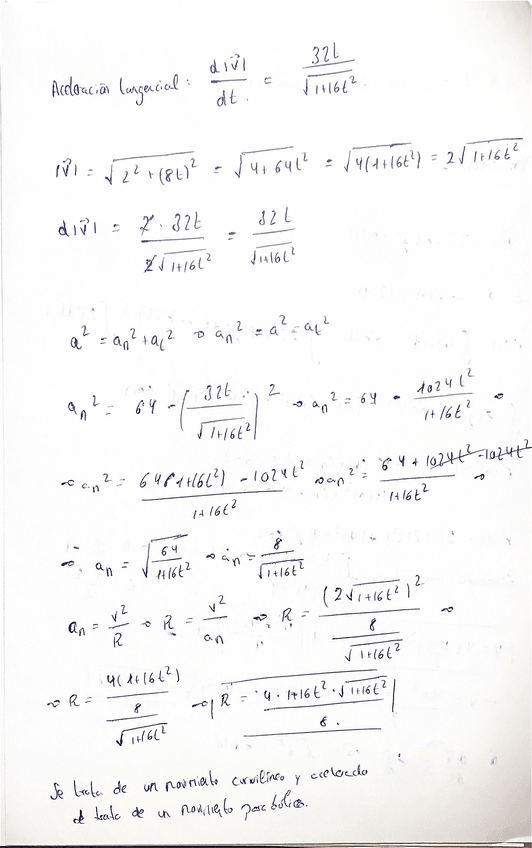 Aceleración tangencial: d|v⃗|/dt = 32t/√(1+16t²)
|v⃗| = √(2²+(8t)²) = √(4+64t²) = √(4(1+16t²)) = 2√(1+16t²)
d|v⃗| = 2·32t/2√(1+16t²) = 32t/√(1+16t²)
a² = an²+at² ⇒ an² = a²-at²
an² = 64 - (32t/√(1+16t²))² ⇒ an² = 64 - 1024t²/1+16t² ⇒
⇒ an² = 64(1+16t²) - 1024t²/1+16t² ⇒ an² = 64+1024t²-1024t²/1+16t² ⇒
⇒ an = √(64/1+16t²) ⇒ an = 8/√(1+16t²)
an = v²/R ⇒ R = v²/an ⇒ R = (2√(1+16t²))²/(8/√(1+16t²)) ⇒
⇒ R = 4(1+16t²)/(8/√(1+16t²)) ⇒ R = 4·1+16t²·√(1+16t²)/8.
Se trata de un movimiento curvilíneo y acelerado
se trata de un movimiento parabólico.